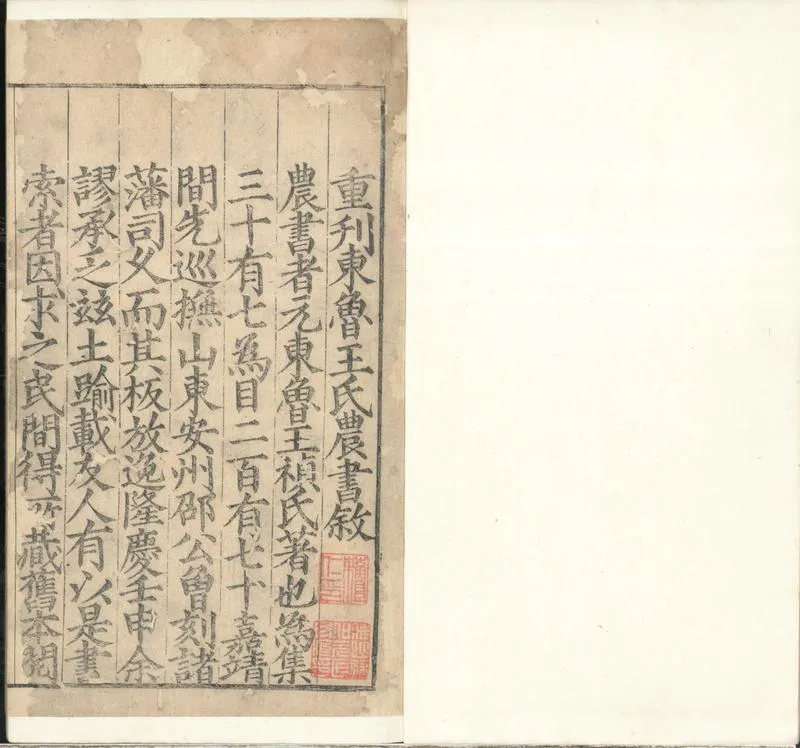 重刋東魯王氏農書敘
農書者元東魯王禎氏著也為集
三十有七為目二百有七十嘉靖
間先巡撫山東安州邵公曾刻諸
藩司乆而其板放逸隆慶壬申余
謬承乏兹土踰載友人有以是書
索者因求之民間得所藏舊本閱